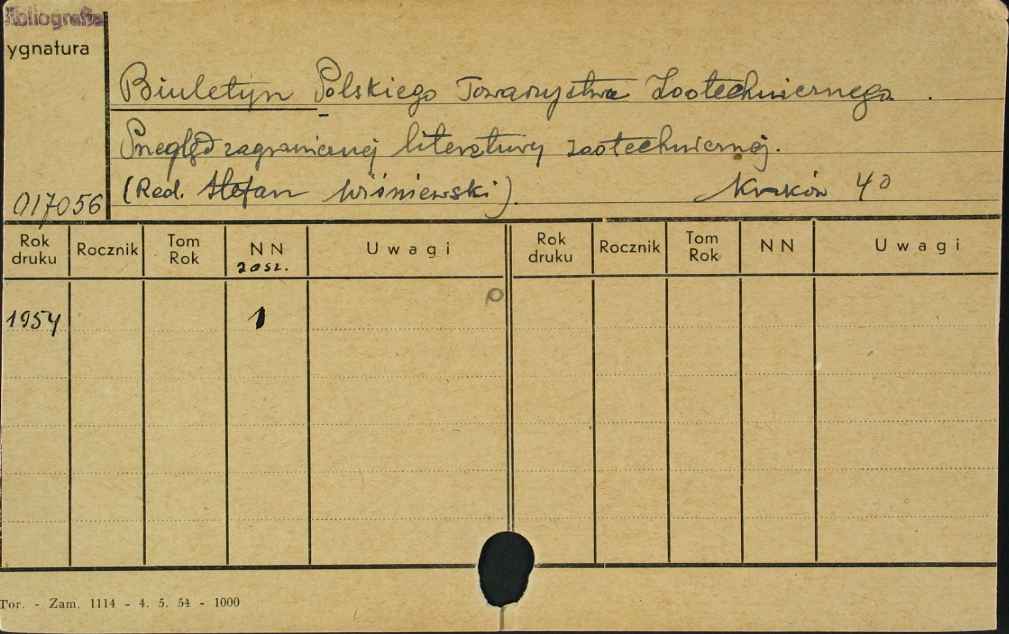 Bibliografia
ygnatura
Biuletyn Polskiego Towarzystwa Zootechnicznego.
Przegląd zagranicznej literatury zootechnicznej.
(Red. Stefan Wiśniewski). Kraków 4°
017056
Rok druku Rocznik Tom Rok NN zesz. Uwagi Rok druku Rocznik Tom Rok NN Uwagi
1954 1
Tor. - Zam. 1114 - 4. 5. 54 - 1000